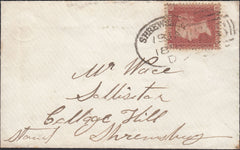 SHREWS
18
Mr Wace
Sollisitor
College Hill
Shrewsbury